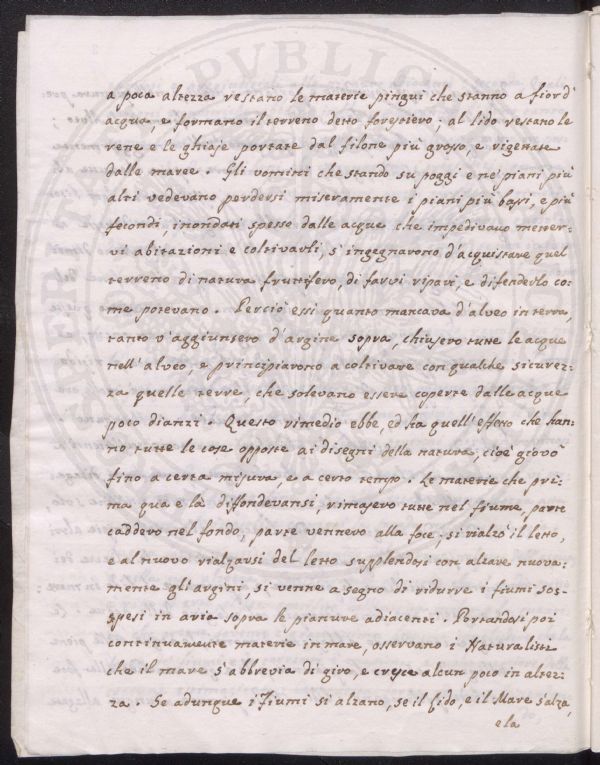 a poca altezza restano le materie pingui che stanno a fior d'
acqua, e formano il terreno detto forestiero; al lido restano le
rene e le ghiaje portate dal filone più grosso, e rigettate
dalle maree. Gli uomini che stando su poggi e ne' piani più
alti vedevano perdersi miseramente i piani più bassi, e più
fecondi, inondati spesso dalle acque che impedivano metter-
vi abitazioni e coltivarli, s'ingegnarono d'acquistare quel
terreno di natura fruttifero, di farvi ripari, e difenderlo co-
me potevano. Perciò essi quanto mancava d'alveo in terra,
tanto v'aggiunsero d'argine sopra, chiusero tutte le acque
nell'alveo, e principiarono a coltivare con qualche sicurez-
za quelle terre, che solevano essere coperte dalle acque
poco dianzi. Questo rimedio ebbe, ed ha quell'effetto che han-
no tutte le cose opposte ai disegni della natura, cioè giovò
fino a certa misura, e a certo tempo. Le materie che pri-
ma qua e là diffondevansi, rimasero tutte nel fiume, parte
caddero nel fondo, parte vennero alla foce; si rialzò il letto,
e al nuovo rialzarsi del letto supplendosi con alzare nuova-
mente gli argini, si venne a segno di ridurre i fiumi sos-
spesi in aria sopra le pianure adiacenti. Portandosi poi
continuamente materie in mare, osservano i Naturalisti
che il mare s'abbrevia di giro, e cresce alcun poco in altez-
za. Se adunque i Fiumi si alzano, se il Lido, e il Mare s'alza,
e la
PVBLIC